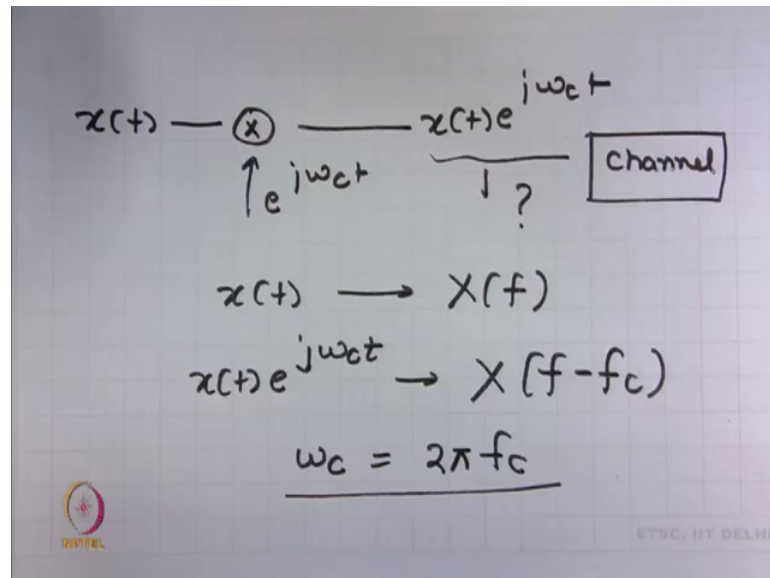 x(t) — ⊗ — x(t)e^{jω_c t}
↑ e^{jω_c t} ↓ ? Channel
x(t) → X(f)
x(t)e^{jω_c t} → X(f-f_c)
ω_c = 2π f_c
NPTEL
ETSC, IIT DELHI